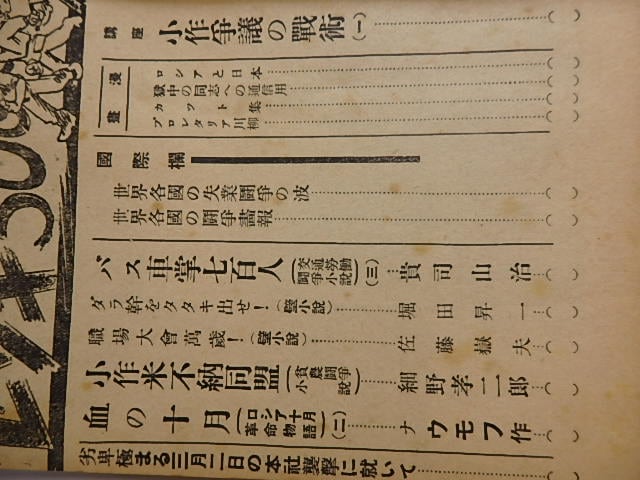 講座 小作爭議の戰術(一)
漫畫
ロシアと日本
獄中の同志への通信用
カット集
プロレタリア川柳
國際欄
世界各國の失業鬪爭の波
世界各國の鬪爭畵報
バス車掌七百人(交通勞働鬪爭小說)(三) 貴司山治
ダラ幹をタタキ出せ!(壁小說) 堀田昇一
職場大會萬歲!(壁小說) 佐藤獄夫
小作米不納同盟(貧農鬪爭小說) 細野孝二郎
血の十月(ロシア十月革命物語)(二) ナウモフ作
劣卑極まる三月二日の本社襲擊に就いて